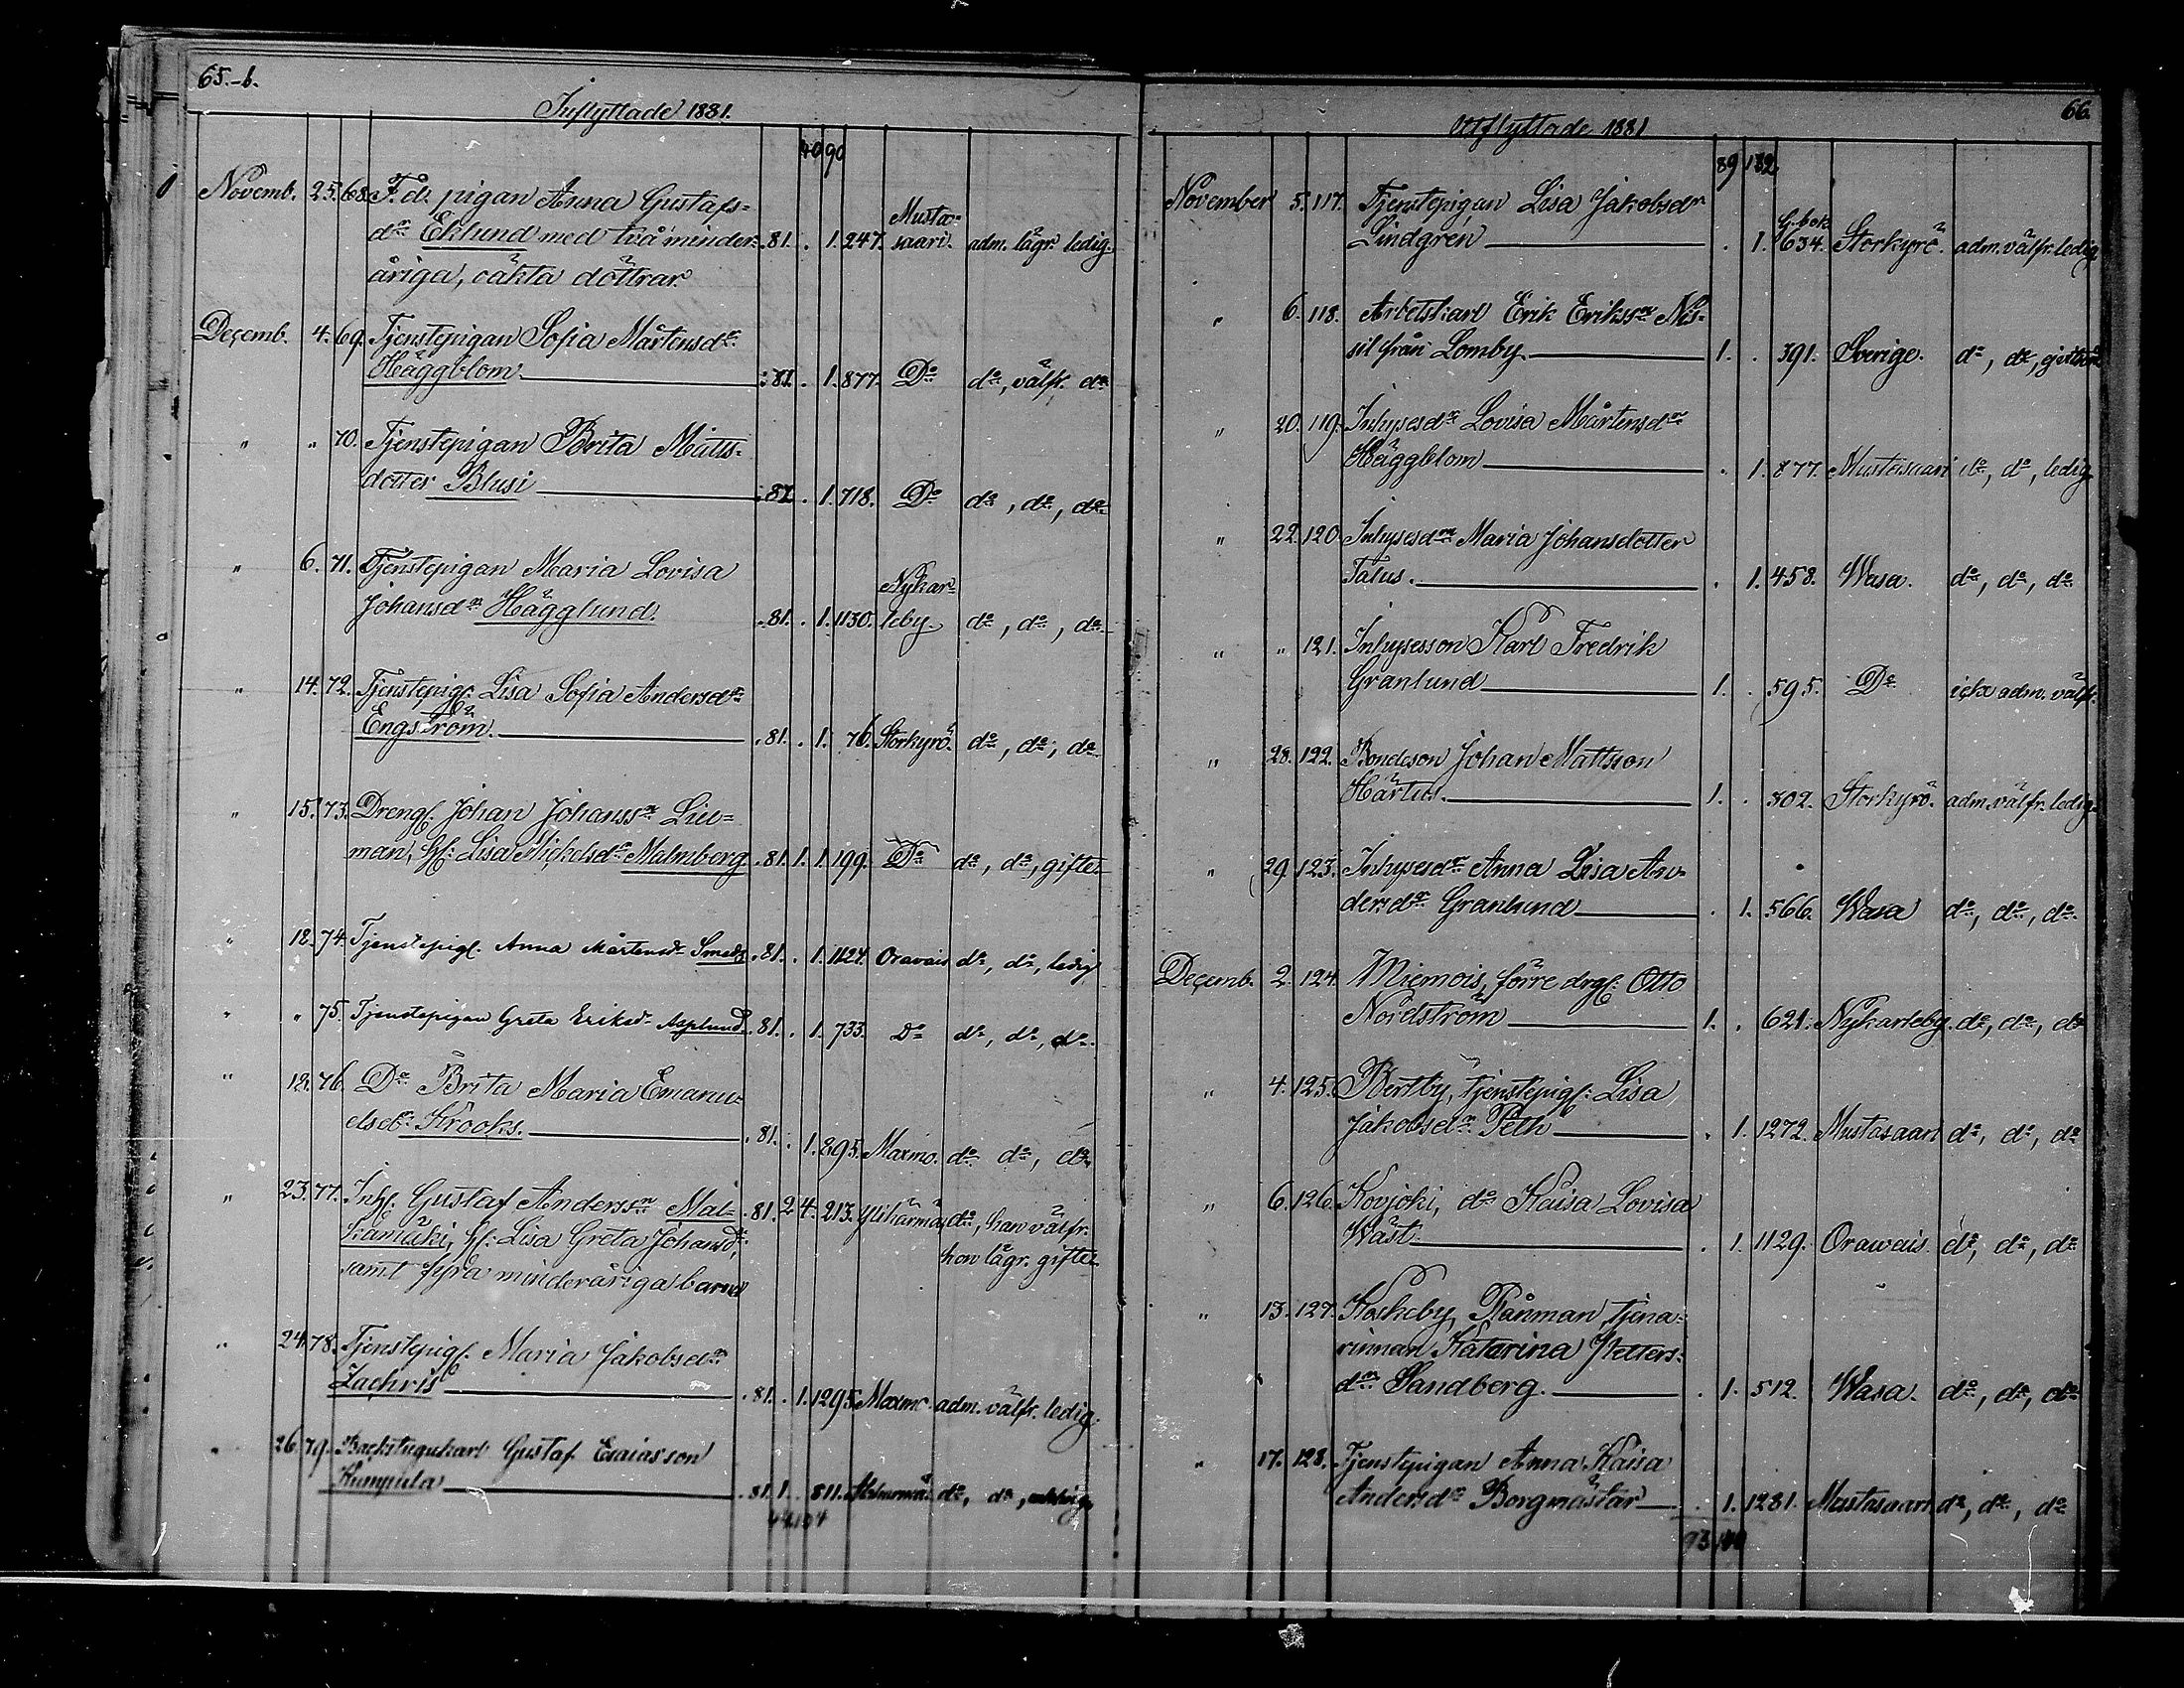 65.-b.
Inflyttade 1881.
40 90
Novemb. 25. 68. F. d. pigan Anna Gustafs=
dr Eklund med två minder= .81. . 1. 247. Musta=
saari. adm. lågr. ledig.
åriga, oäkta döttrar.
Decemb. 4. 69. Tjenstepigan Sofia Mårtensdr
Häggblom .81. . 1. 877. Do do, välfr. do
" " 70. Tjenstepigan Brita Matts=
dotter Blusi .81. . 1. 718. Do do, do, do
" 6. 71. Tjenstepigan Maria Lovisa
Johansdr Hägglund. .81. . 1. 1130. Nykar=
leby. do, do, do
" 14. 72. Tjenstepigf. Lisa Sofia Andersdr
Engström. .81. . 1. 76. Storkyrö. do, do, do
" 15. 73. Drengf. Johan Johanssn Lill=
man, hf. Lisa Mickelsdr Malmberg .81. 1. 1. 199. Do do, do, gifte.
" 12. 74. Tjenstepigf. Anna Mårtensdr Smeds .81. . 1. 1124. Oravais do, do, ledig
" " 75. Tjenstepigan Greta Eriksdr Asplund .81. . 1. 733. Do do, do, do.
" 12. 76. Do Brita Maria Emanu=
elsdr Krooks. .81. . 1. 895. Maxmo. do do, do
" 23. 77. Inhf. Gustaf Anderssn Mal= .81. 2. 4. 213. Ylihärmä, do, han välfr.
kamäki, hf. Lisa Greta Johansdr, hon lågr. gifte.
samt fyra minderåriga barn
" 24. 78. Tjenstepigf. Maria Jakobsdr
Zachris .81. . 1. 1295. Maxmo. adm. välfr. ledig.
" 26. 79. Backstugukarl Gustaf Esaiasson
Kumpula .81. 1. . 811. do, do,
44 104
66.
Utflyttade 1881
89 132
November 5. 117. Tjenstepigan Lisa Jakobsdr
Lindgren . 1. G. bok
634. Storkyrö. adm. välfr. ledig
" 6. 118. Arbetskarl Erik Erikssn Nis=
sil från Lomby. 1. . 391. Sverige. do, do,
" 20. 119. Inhysesdr Lovisa Mårtensdr
Häggblom . 1. 877. Mustasaari do, do, ledig
" 22. 120. Inhysesdr Maria Johansdotter
Talus. . 1. 458. Wasa. do, do, do
" " 121. Inhysesson Karl Fredrik
Granlund 1. . 595. Do icke adm. välfr.
" 28. 122. Bondeson Johan Mattsson
Härtus. 1. . 302. Storkyrö. adm. välfr. ledig.
" 29. 123. Inhysesdr Anna Lisa An=
dersdr Granlund . 1. 566. Wasa do, do, do
Decemb. 2. 124. Miemois, förre drgf. Otto
Nordström 1. . 621. Nykarleby. do, do, do
" 4. 125. Bertby, tjenstepigf. Lisa
Jakobsdr Peth . 1. 1272. Mustasaari do, do, do
" 6. 126. Kovjoki, do Kaisa Lovisa
Wäst . 1. 1129. Orawais. do, do, do
" 13. 127. Kaskeby, Rånman, tjena=
rinnan Katarina Petters=
dr Sandberg. . 1. 512. Wasa. do, do, do
" 17. 128. Tjenstepigan Anna Kaisa
Andersdr Borgmästar . 1. 1281. Mustasaari do, do, do
93